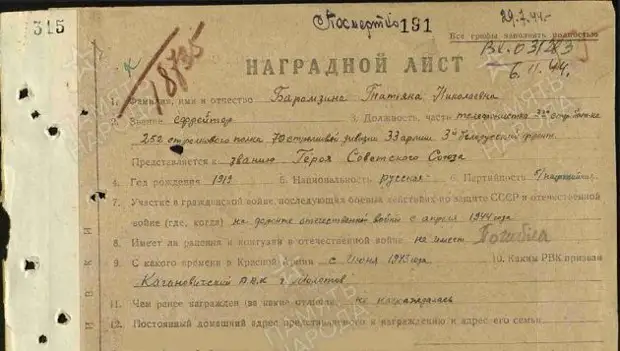 315
Посмертно 191
29.7.44
Все графы заполнять полностью
18735
Вх. 031283
6.11.44.
НАГРАДНОЙ ЛИСТ
1. Фамилия, имя и отчество Барамзина Татьяна Николаевна
2. Звание ефрейтор 3. Должность, части телефонистка 3го стр. б-на
252 стрелкового полка 70 стрелковой дивизии 33 армии 3го Белорусского фронта.
Представляется к званию Героя Советского Союза
4. Год рождения 1919 5. Национальность русская 6. Партийность б/партийная
7. Участие в гражданской войне, последующих боевых действиях по защите СССР и отечественной
войне (где, когда) на фронте отечественной войны с апреля 1944 года
8. Имеет ли ранения и контузии в отечественной войне не имеет Погибла
9. С какого времени в Красной Армии с Июня 1943 года. 10. Каким РВК призван
Кагановичский РВК г. Молотов
11. Чем ранее награжден (за какие отличия) не награждалась
12. Постоянный домашний адрес представляемого к награждению и адрес его семьи
ПАМЯТЬ НАРОДА